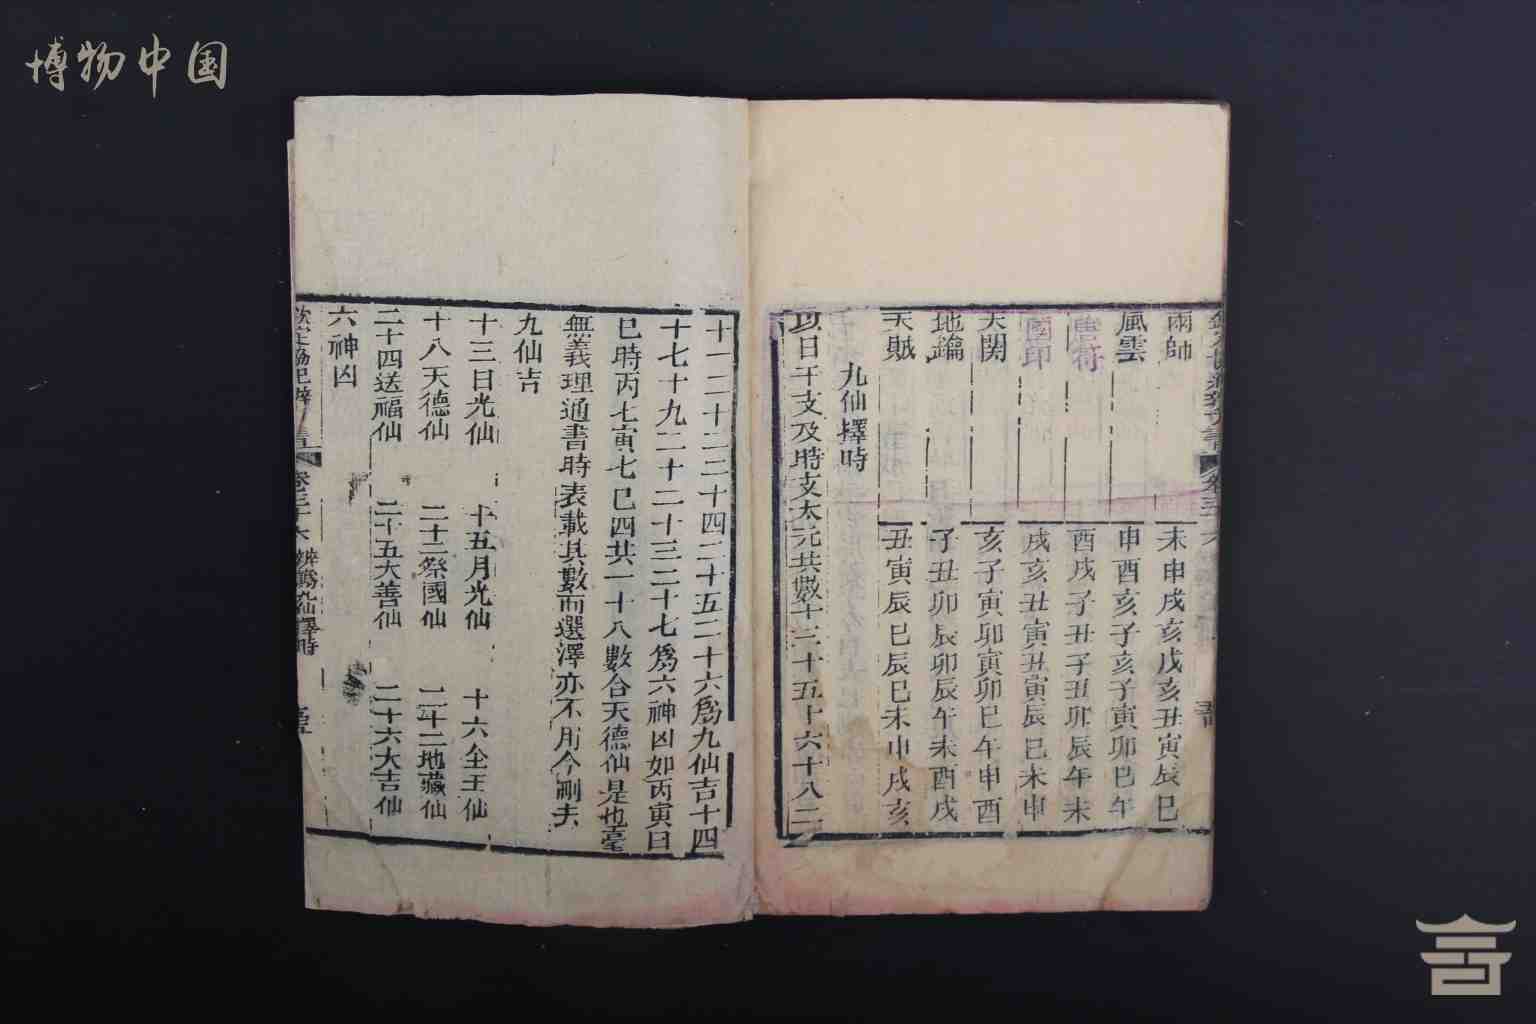 博物中国
雨師 未申戌亥戌亥丑寅辰巳
風雲 申酉亥子亥子寅卯巳午
唐符 酉戌子丑子丑卯辰午未
國印 戌亥丑寅丑寅辰巳未申
天関 亥子寅卯寅卯巳午申酉
地鑰 子丑卯辰卯辰午未酉戌
天賊 丑寅辰巳辰巳未申戌亥
九仙擇時
以日干支及時支太元共數十三十五十六十八二
十一二十二二十四二十五二十六爲九仙吉十四
十七十九二十二十三二十七爲六神凶如丙寅日
巳時丙七寅七巳四共一十八數合天德仙是也毫
無義理通書時表載其數而選澤亦不用今刪去
九仙吉
十三日光仙 十五月光仙 十六全王仙
十八天德仙 二十二祭國仙 二十二地藏仙
二十四送福仙 二十五大善仙 二十六大吉仙
六神凶
欽定協紀辨 書 卷三十六 辨譌 九仙擇時